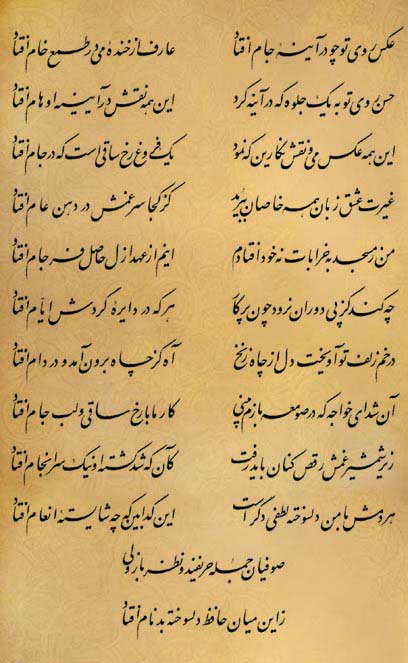 عکس روی تو چو در آینهٔ جام افتاد عارف از خندهٔ می در طمع خام افتاد
حسن روی تو به یک جلوه که در آینه کرد این همه نقش در آیینهٔ اوهام افتاد
این همه عکس می و نقش نگارین که نمود یک فروغ رخ ساقی است که در جام افتاد
غیرت عشق زبان همه خاصان ببرید کز کجا سر غمش در دهن عام افتاد
من ز مسجد به خرابات نه خود افتادم اینم از عهد ازل حاصل فرجام افتاد
چه کند کز پی دوران نرود چون پرگار هر که در دایرهٔ گردش ایام افتاد
در خم زلف تو آویخت دل از چاه زنخ آه کز چاه برون آمد و در دام افتاد
آن شد ای خواجه که در صومعه بازم بینی کار ما با رخ ساقی و لب جام افتاد
زیر شمشیر غمش رقص کنان باید رفت کآن که شد کشتهٔ او نیک سرانجام افتاد
هر دمش با من دلسوخته لطفی دگر است این گدا بین که چه شایستهٔ انعام افتاد
صوفیان جمله حریفند و نظرباز ولی
زاین میان حافظ دلسوخته بدنام افتاد